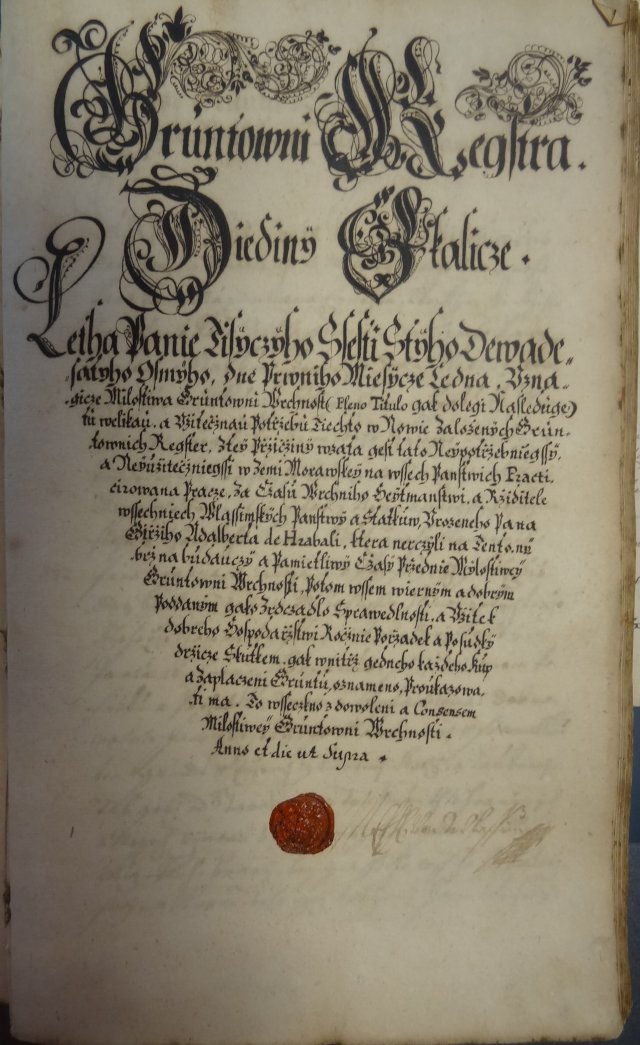 Grúntowni Regstra.
Diediny Skalicze.
Letha Panie Tisyczyho Ssesti Stýho Dewade„
satyho Osmýho, dne Prwniho Miesýcze Ledna, Vzna„
gicze Milostiwa Grúntowni Wrchnost (Pleno Titulo gak dolegi Nasledúge)
tú welikaú, a Vžitečnaú Potřzebú Tiechto w Nowie Založených Grún„
townich Regster, Ztey Přžicžiný wzata gest tato Neypotřžebniegssý,
a Neyúžitečzniegssi w Zemi Morawskey na wssech Panstwich Practi„
cirowana Pracze, Za Cžasú Wrchniho Heytmanstwi, a Ržiditele
wssechniech Wlassimských Panstwý a Statkúw, Vrozeneho Pana
Giržiho Adalberta de Hrabali, ktera nerczýli na Tento, ný
brž na búdaúczý a Pamietliwý Cžasý Przednie Mýlostiwey
Grúntowni Wrchnosti, Potom wssem wierným a dobrým
Poddaným gako Zrdczadlo Sprawedlnosti, a Vžitek
dobreho Hospodařžstwi Rocžnie Pořžadek a Posúdký
držicze Skútkem, gak wnitřž gednoho každeho Kúp
a Zaplaczeni Grúntú, oznameno, Proúkazowa„
ti ma. To wsseczkno z dowoleni a Consensem
Milostiwey Grúntowni Wrchnosti.
Anno et die ut Supra.